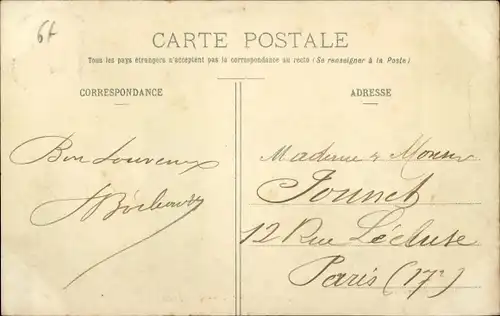 6f
CARTE POSTALE
Tous les pays étrangers n'acceptent pas la correspondance au recto (Se renseigner à la Poste)
CORRESPONDANCE
ADRESSE
Bon Souvenir
Madame & Monsieur
12 Rue Lécluse
Paris (17e)